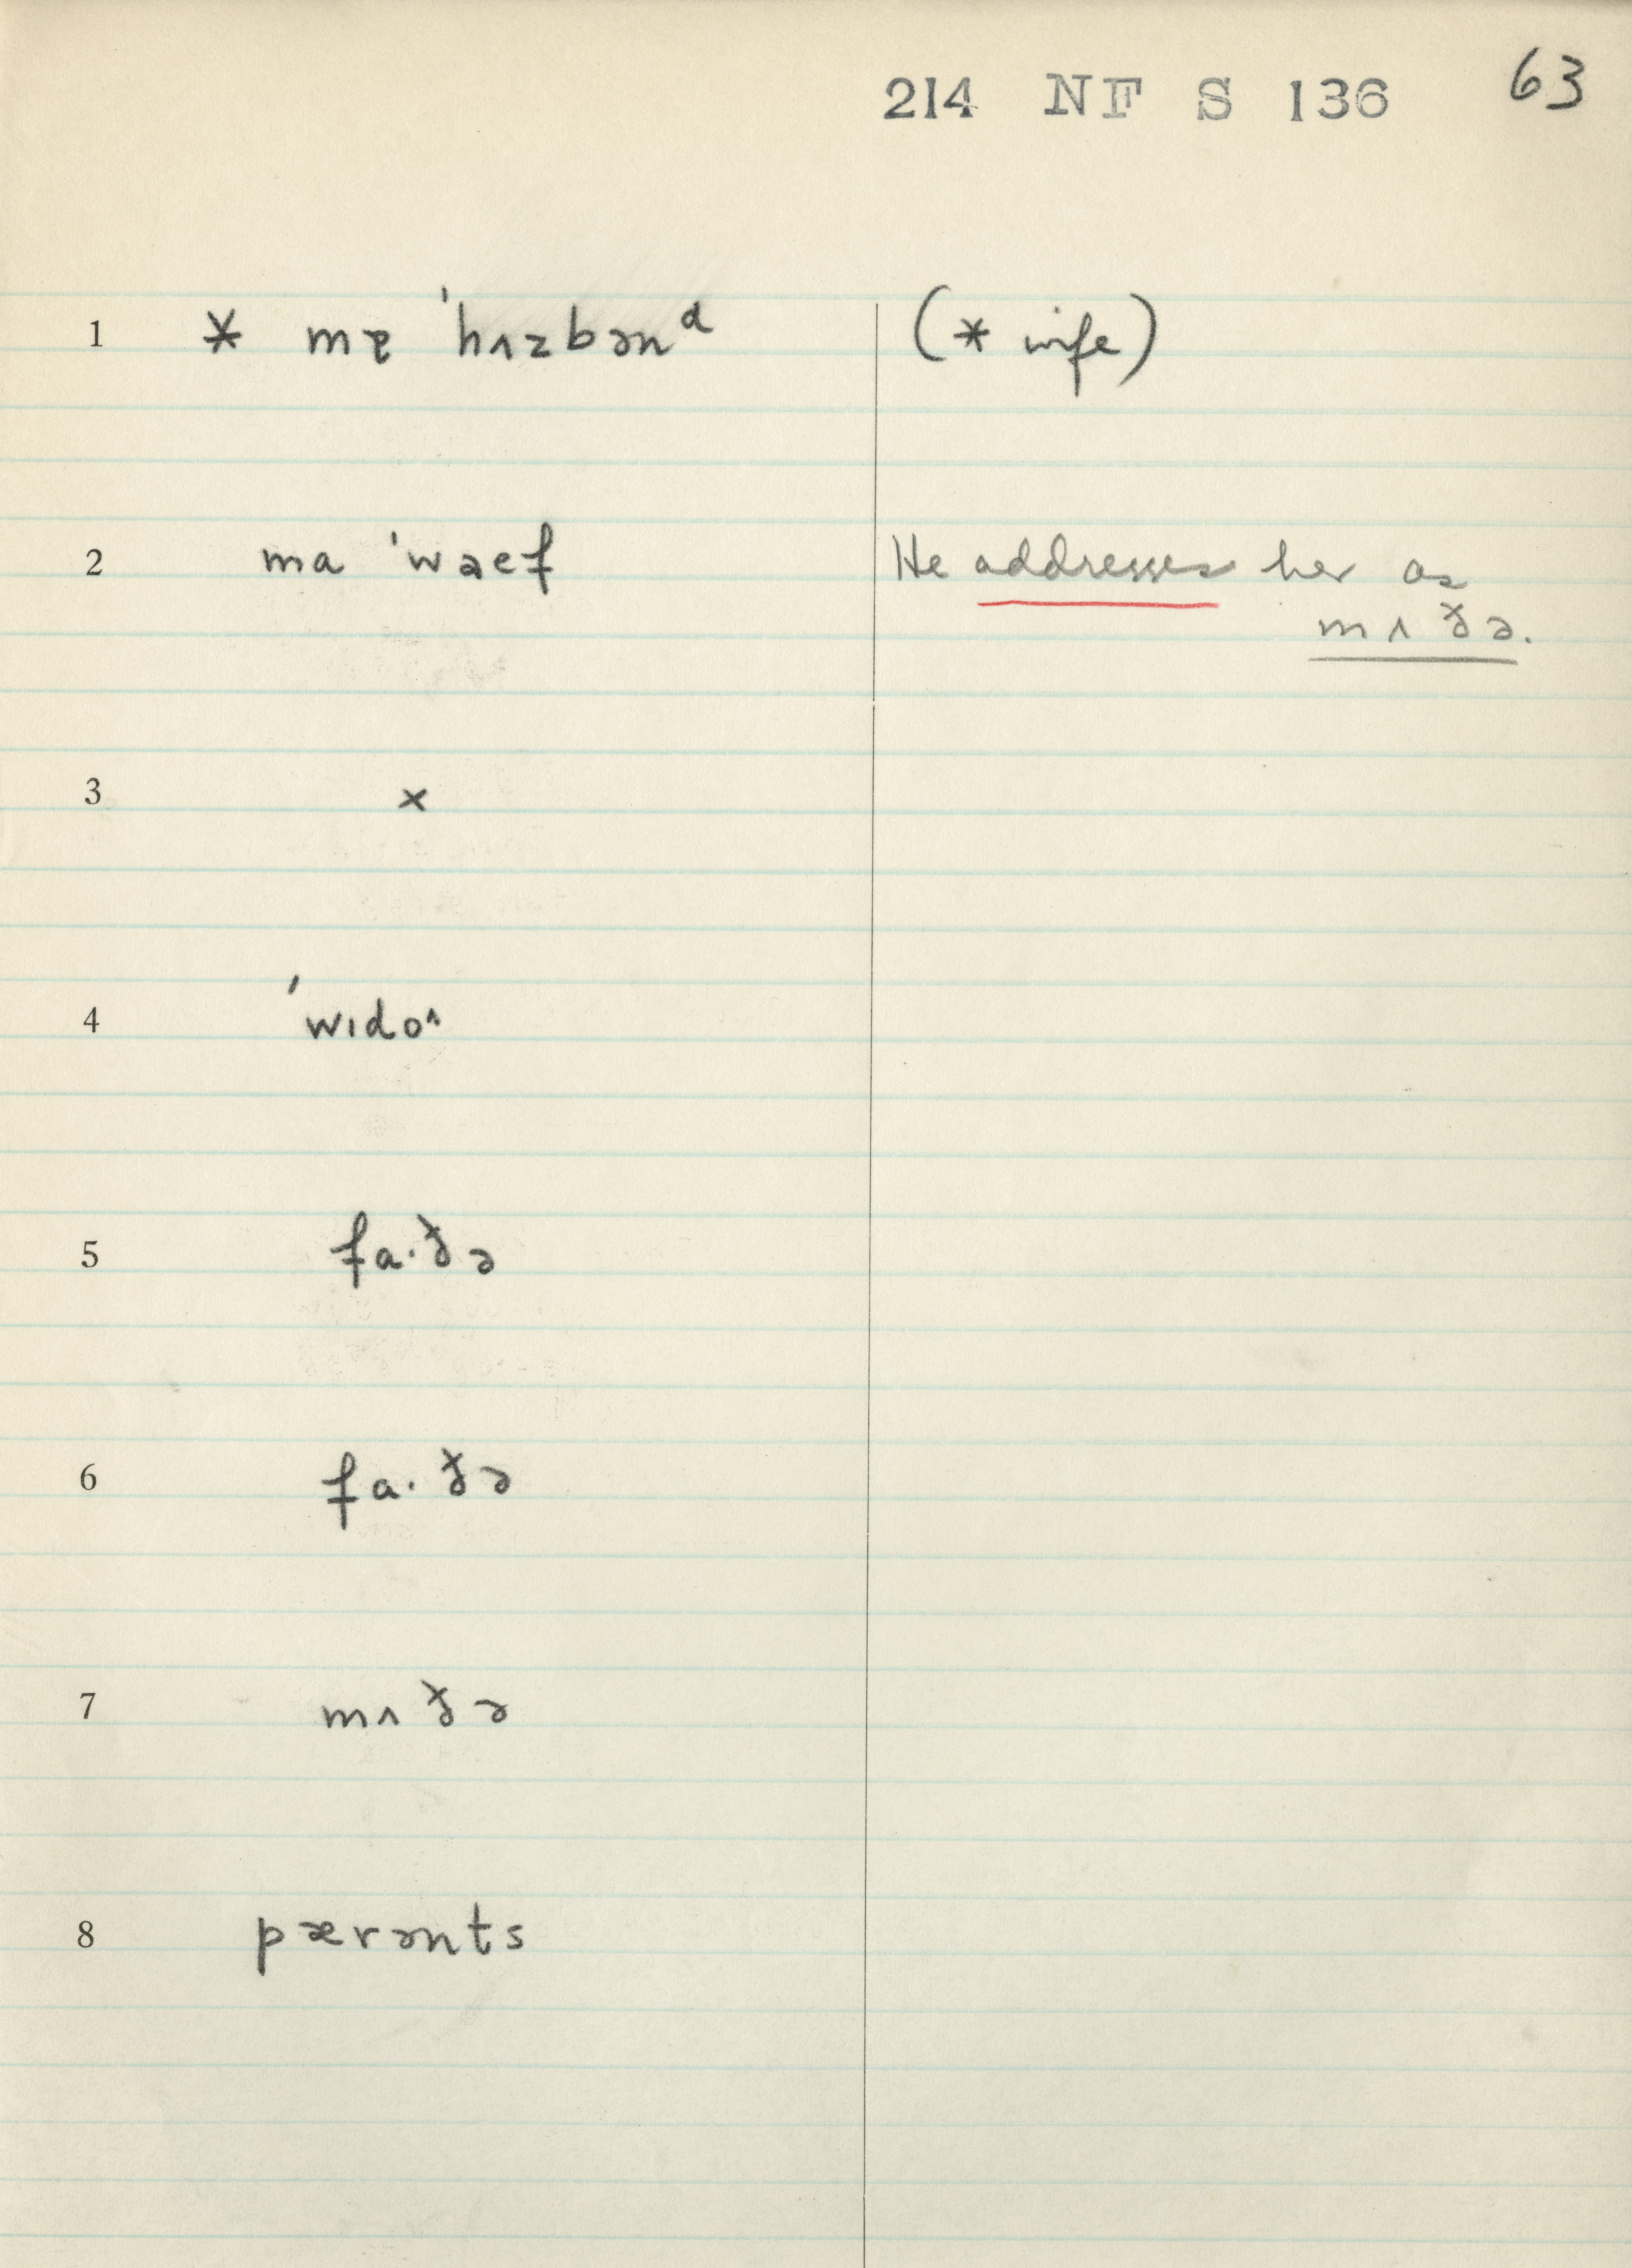 214 NF S 136 63
1 * mɐ ˈhʌzbənᵈ (* wife)
2 ma ˈwaef He addresses her as
mʌðə.
3 ×
4 ˈwɪdoᶺ
5 fa·ðə
6 fa·ðə
7 mʌðə
8 pærənts